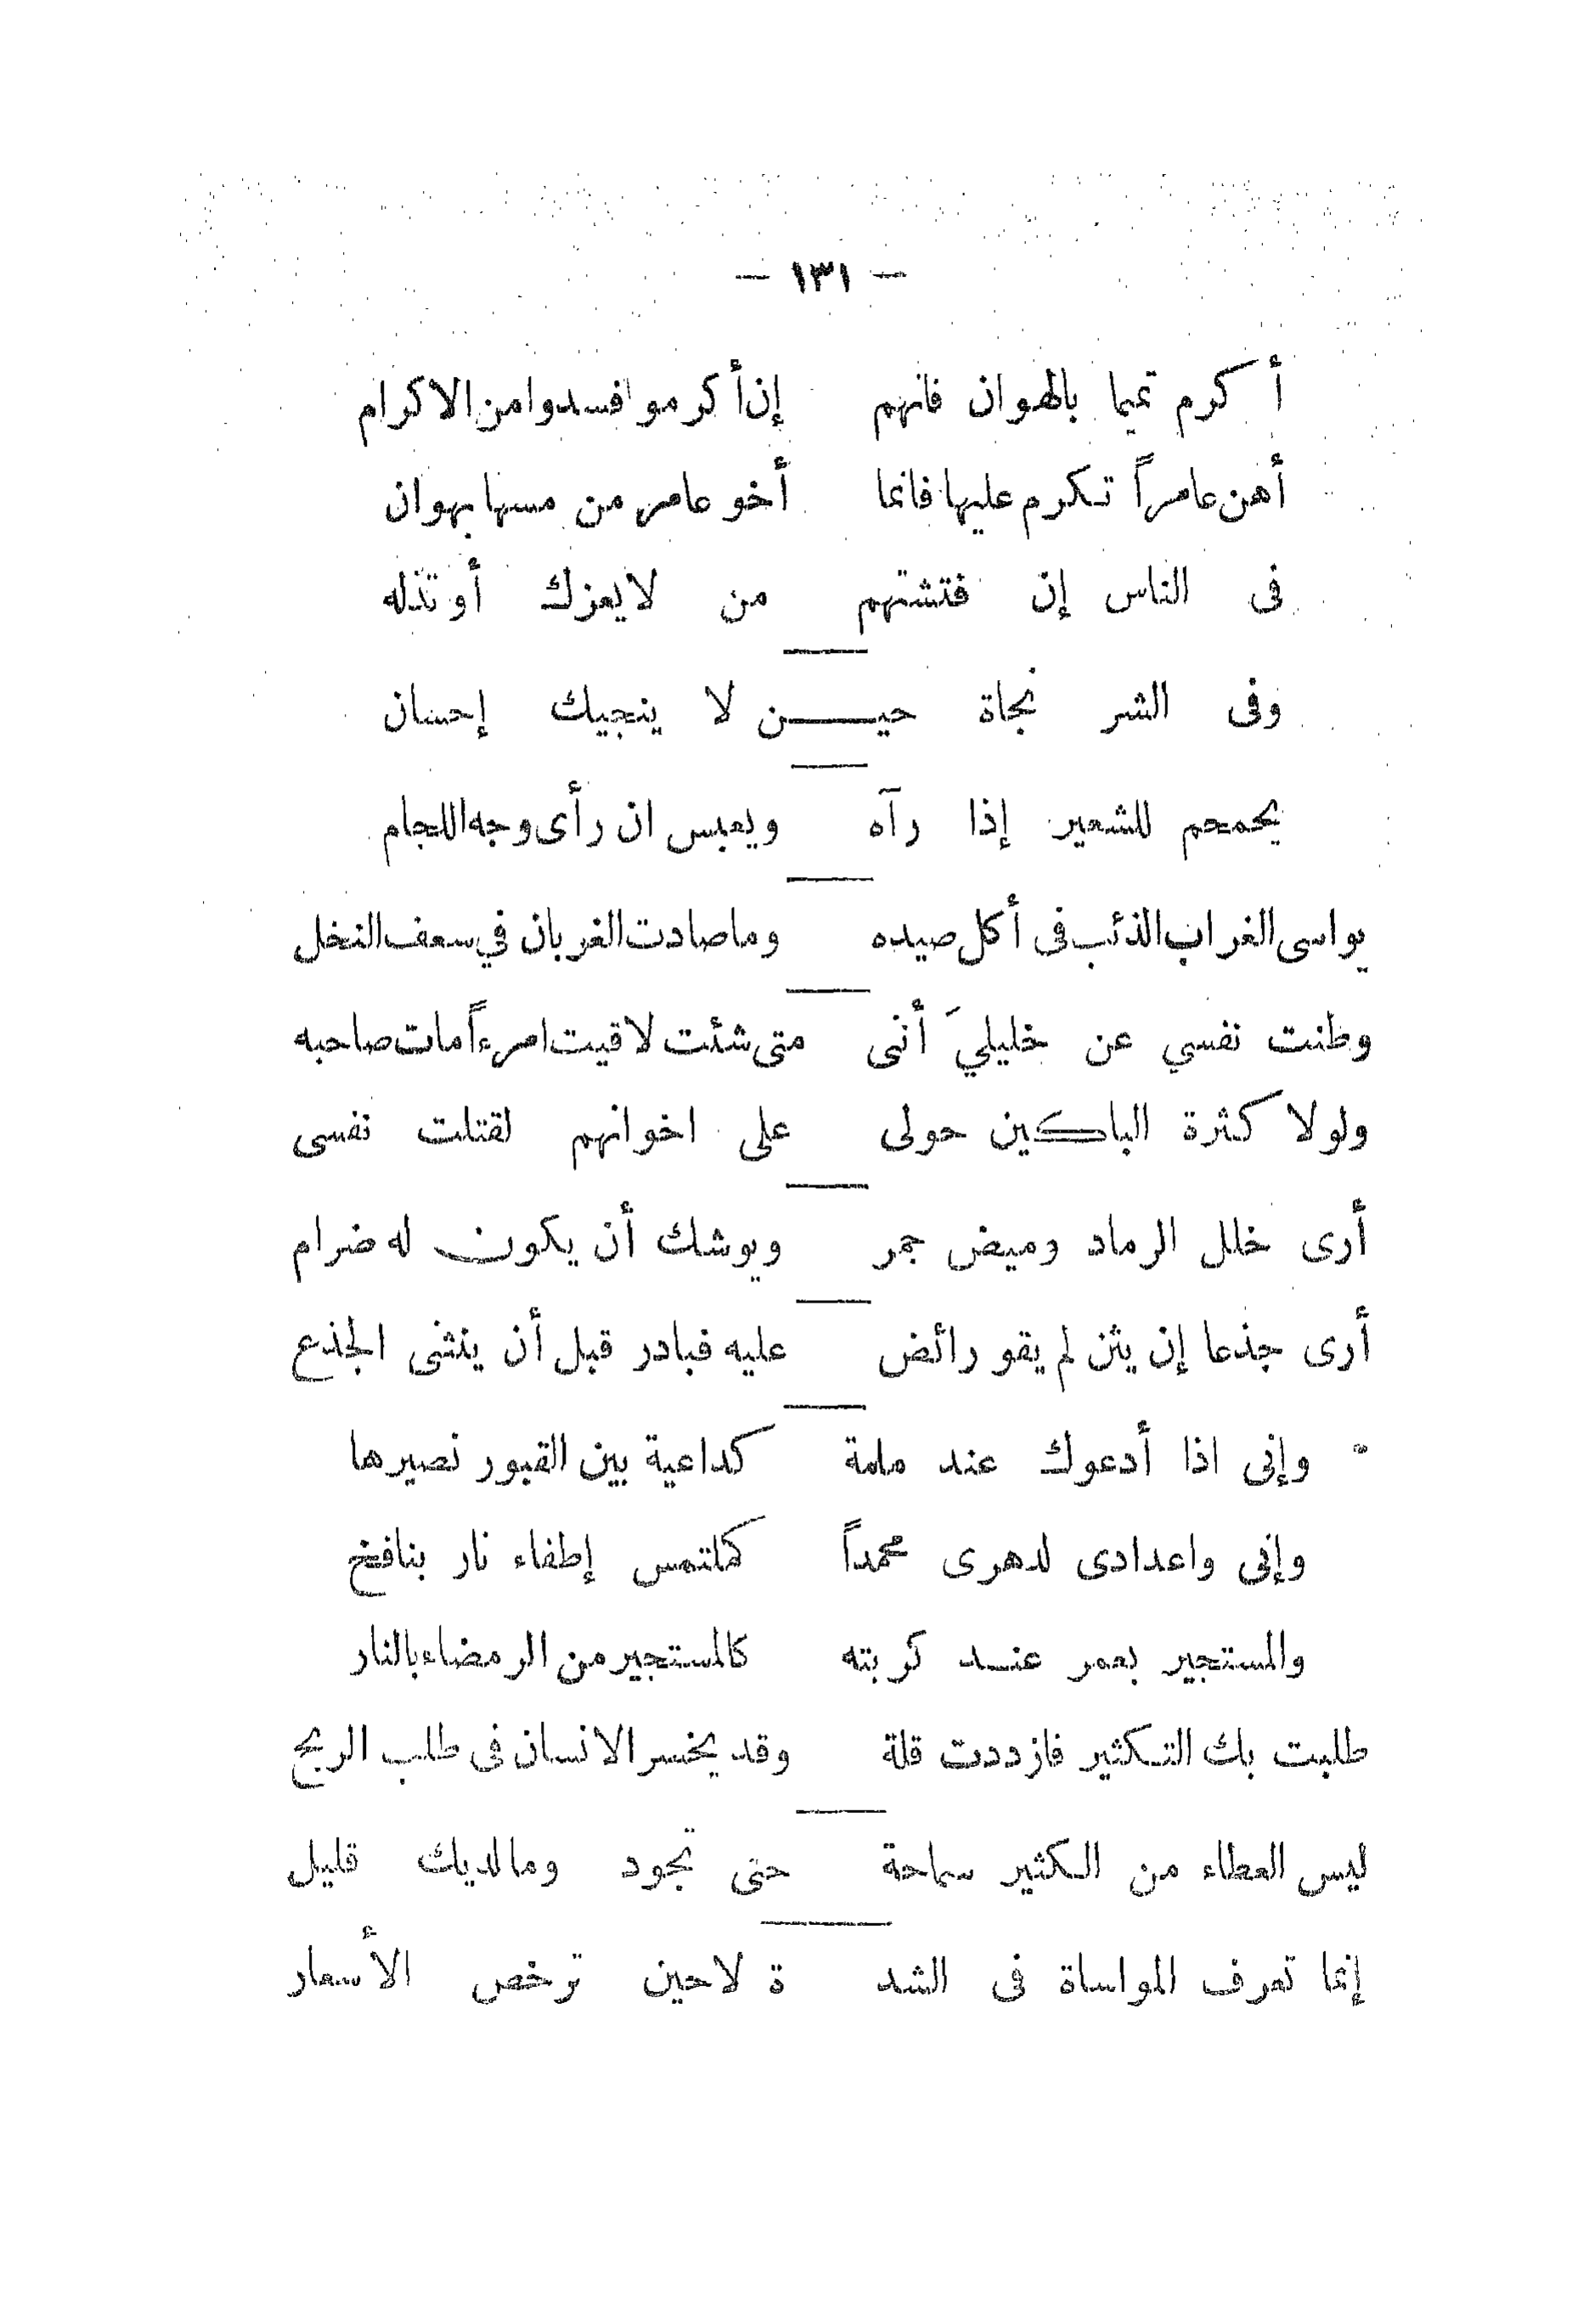 — ١٣١ —
أكرم تميما بالهوان فانهم إن أكرموا فسدوا من الاكرام
أهن عامراً تكرم عليها فانما أخو عامر من مسها بهوان
فى الناس إن فتشتهم من لا يعزك أو تذله
وفى الشر نجاة حيـــن لا ينجيك إحسان
يحمحم للشعير إذا رآه ويعبس ان رأى وجه اللجام
يواسى الغراب الذئب فى أكل صيده وما صادت الغربان في سعف النخل
وطنت نفسي عن خليليَ أننى متى شئت لاقيت امرءاً مات صاحبه
ولولا كثرة الباكين حولى على اخوانهم لقتلت نفسى
أرى خلل الرماد وميض جمر ويوشك أن يكون له ضرام
أرى جذعا إن يثن لم يقو رائض عليه فبادر قبل أن ينثنى الجذع
وإنى اذا أدعوك عند ملمة كداعية بين القبور نصيرها
وإنى واعدادى لدهرى محمداً كملتمس إطفاء نار بنافخ
والمستجير بعمر عنـد كربته كالمستجير من الرمضاء بالنار
طلبت بك التكثير فازددت قلة وقد يخسر الانسان فى طلب الربح
ليس العطاء من الكثير سماحة حتى تجود وما لديك قليل
إنما تعرف المواساة فى الشد ة لا حين ترخص الأسعار